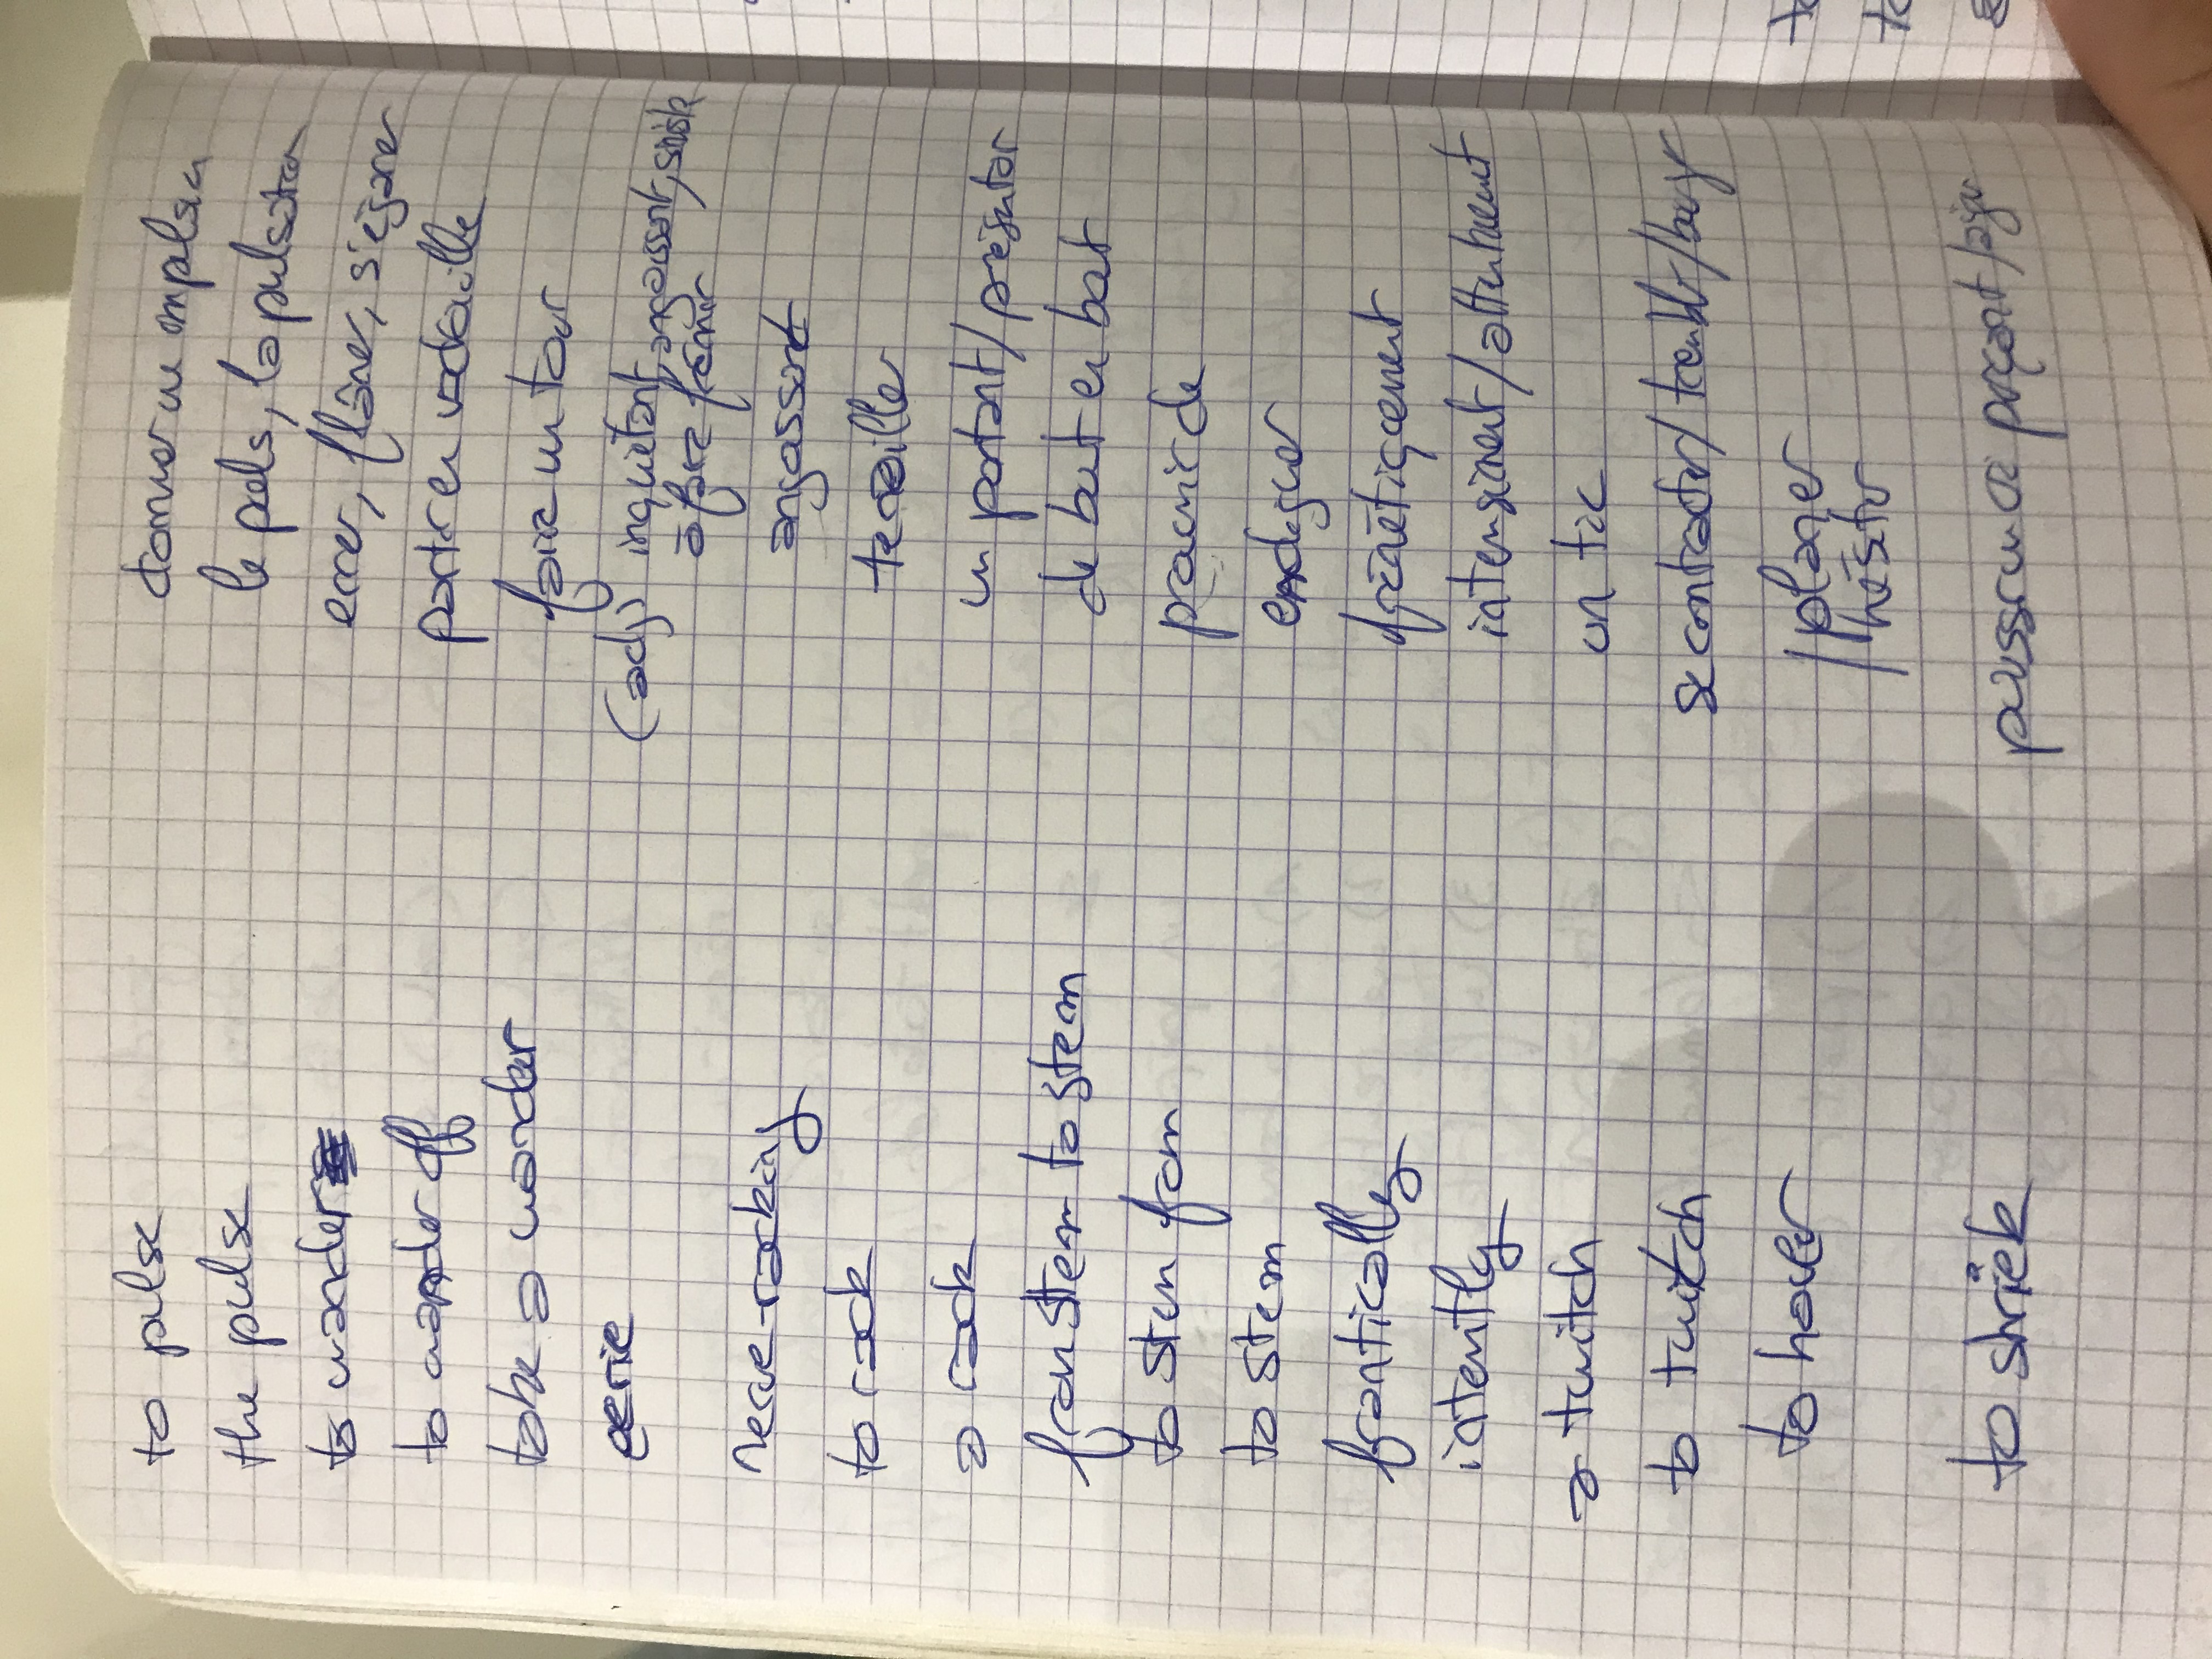 to pulse donner une impulsion
the pulse le pouls, la pulsation
to wander errer, flâner, s'égarer
to wander off partir en vadrouille
take a wander faire un tour
eerie (adj) inquiétant, angoissant, sinistre
à faire frémir
nerve-racking angoissant
to rack tenailler
a rack un portant/présentoir
from stem to stem de bout en bout
to stem from provenir de
to stem endiguer
frantically frénétiquement
intently intensément/attentivement
a twitch un tic
to twitch se contracter/trembler/bouger
to hover /planer
/hésiter
to shriek pousser un cri perçant/aigu